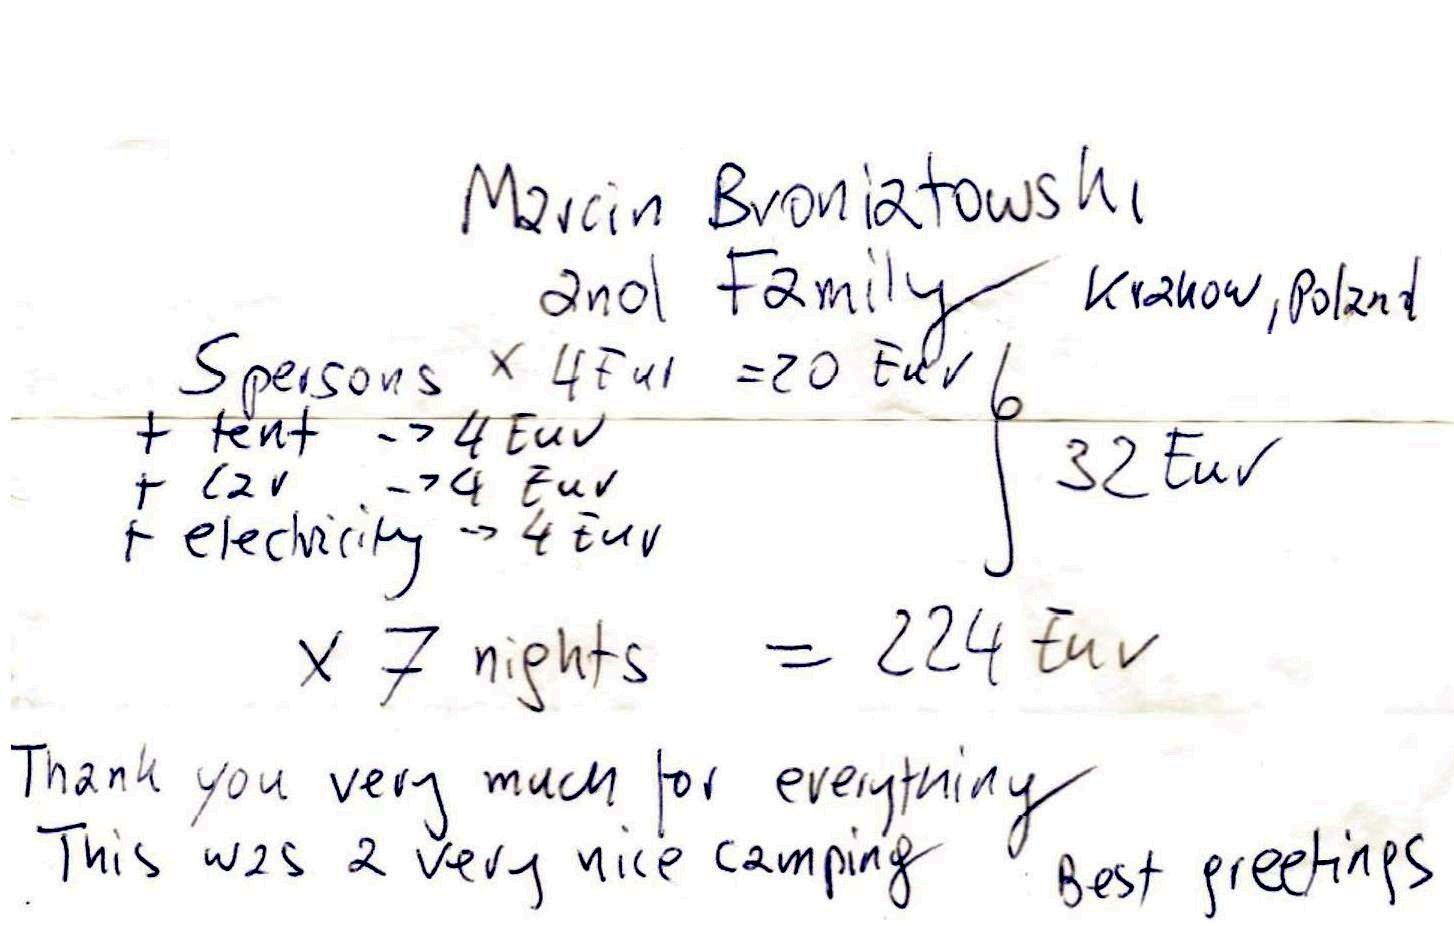 Marcin Broniatowski
and Family Krakow, Poland
5 persons x 4 Eur = 20 Eur
+ tent -> 4 Eur
32 Eur
+ car -> 4 Eur
+ electricity -> 4 Eur
x 7 nights = 224 Eur
Thank you very much for everything
This was a very nice camping Best greetings